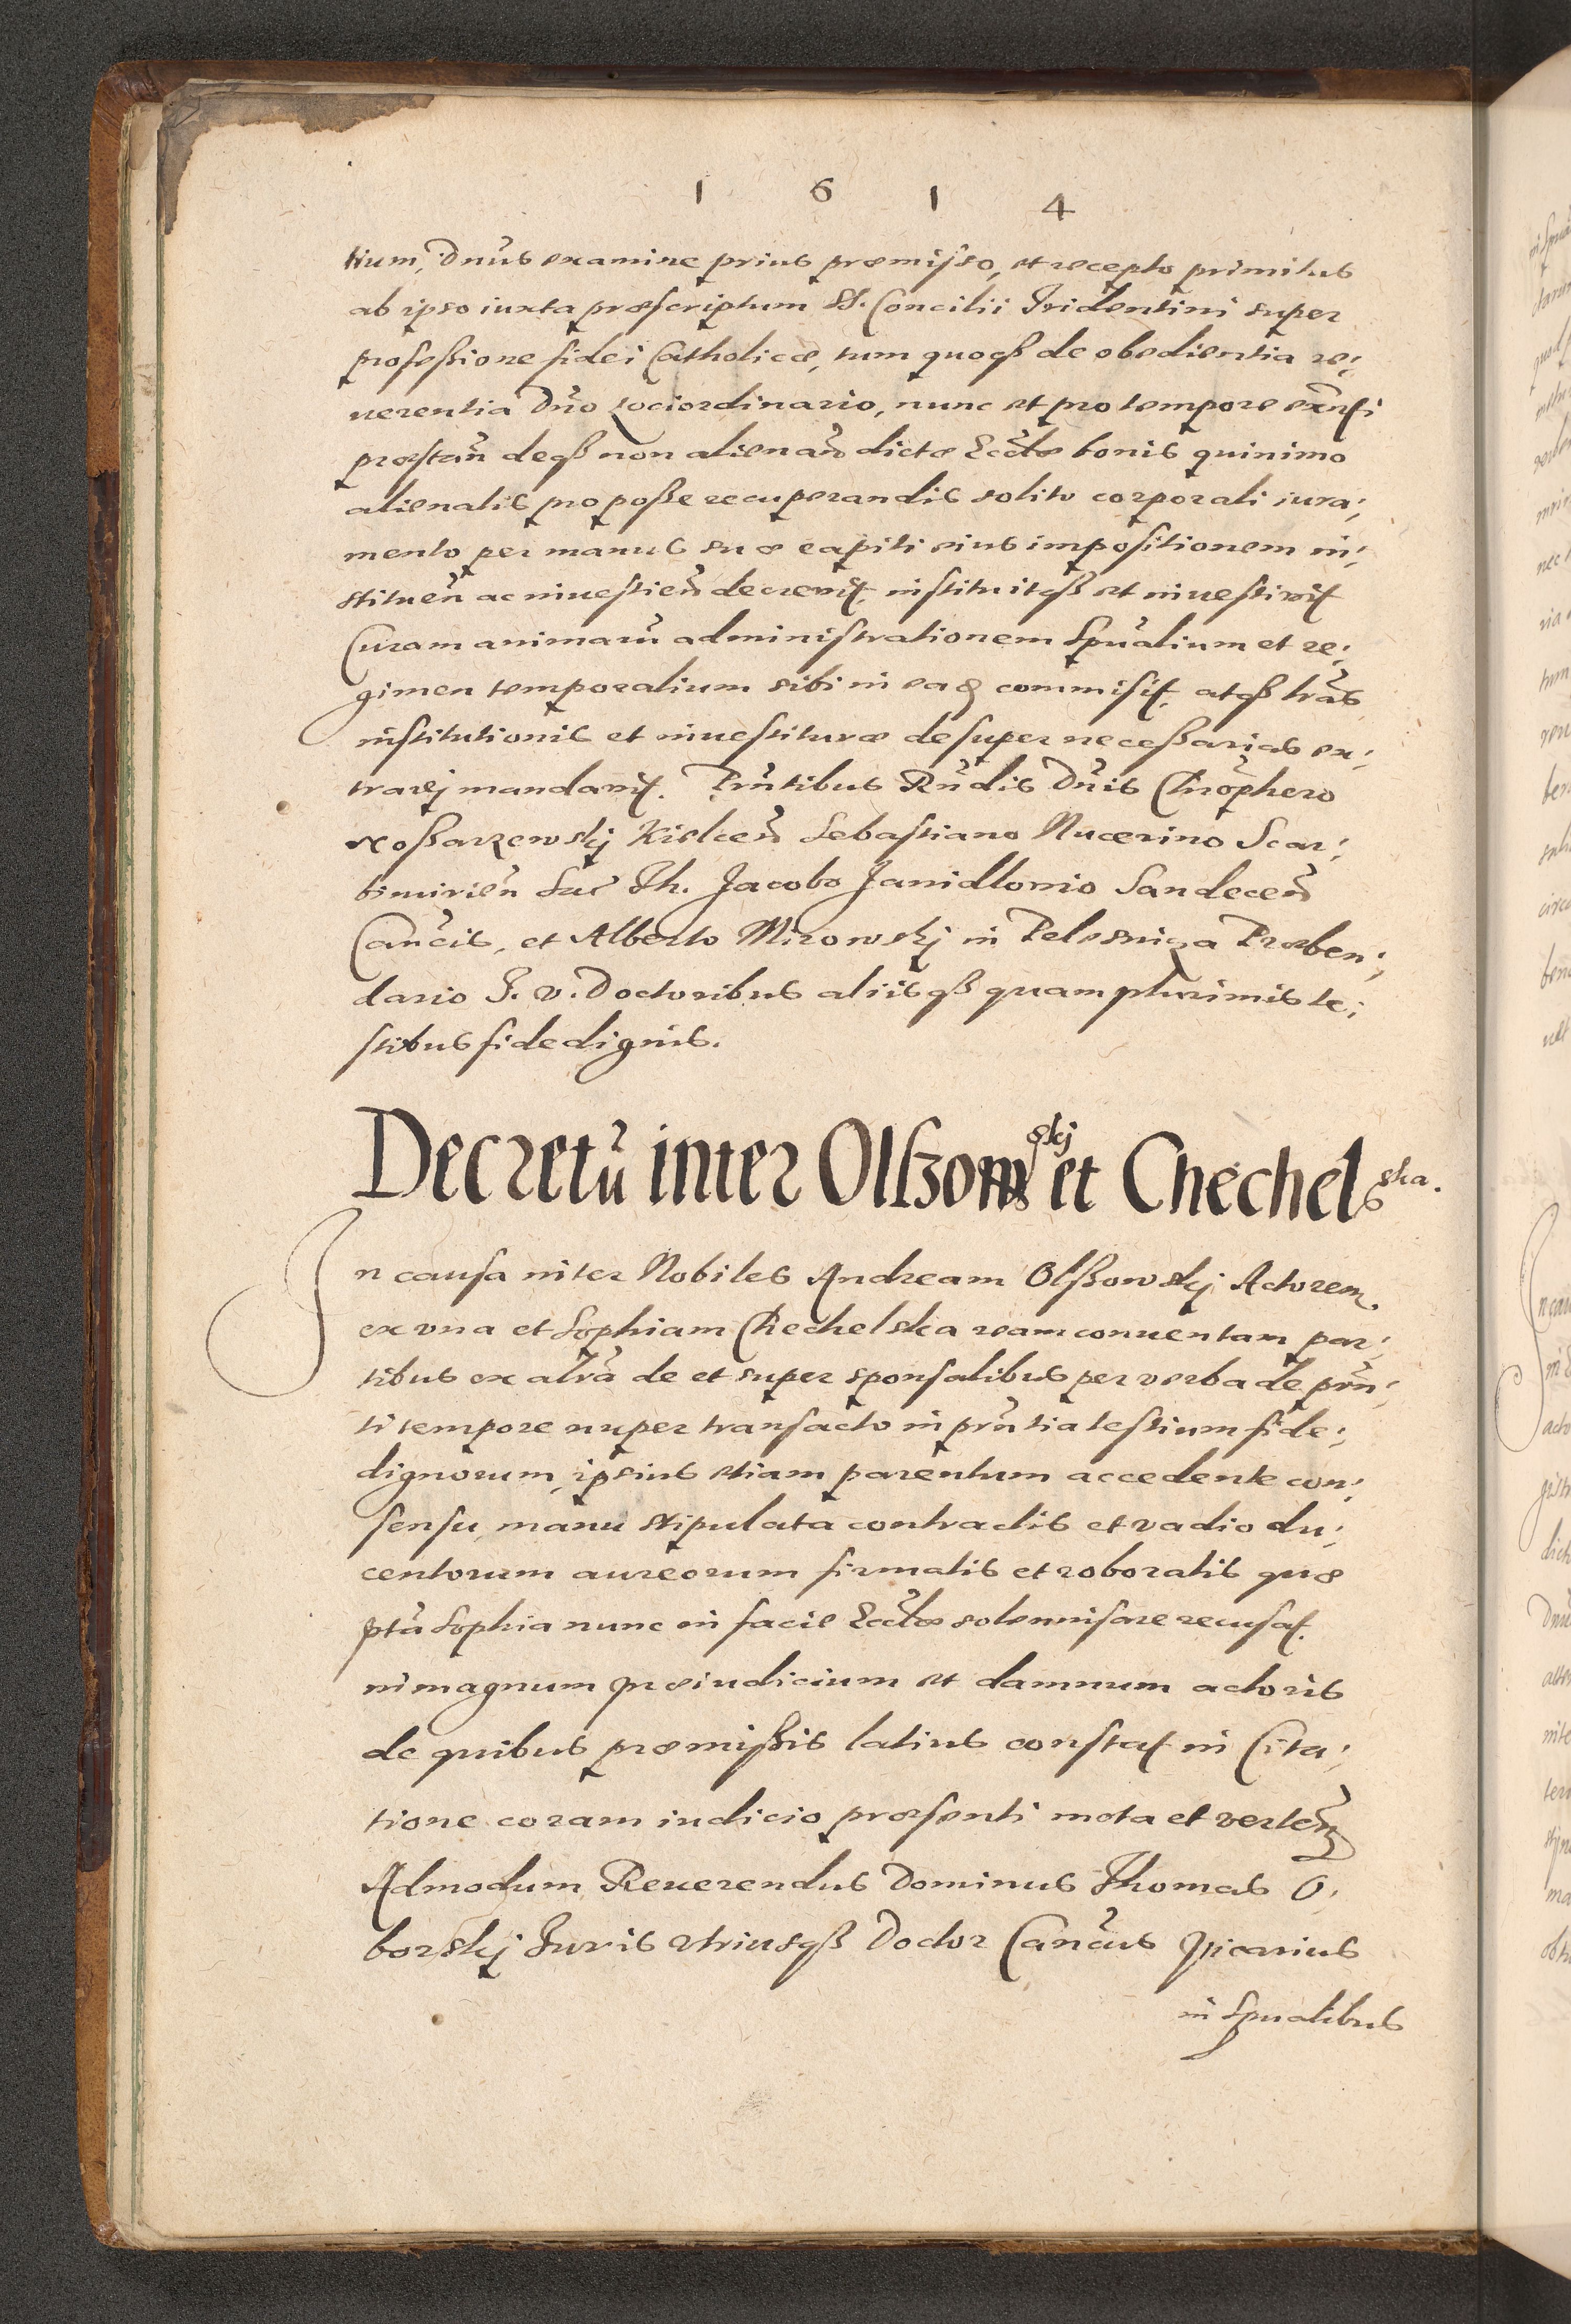 1 6 1 4
tium, Dnūs examine prius præmisso, et recepto primitus
ab ipso iuxta præscriptum SS. Concilii Tridentini super
professione fidei Catholicæ, tum quoqß de obedientia re;
uerentia Dno Lociordinario, nunc et pro tempore exñti
præstañ deqß non alienañ dictæ Eccłæ bonis quinimo
alienatis pro posse recuperandis solito corporali iura;
mento per manus suæ capiti eius impositionem in;
stituen̄ ac inuestien̄ decreuit, instituitqß et inuestiuit
Curam animarū administrationem Spūalium et re;
gimen temporalium sibi in eaq commisit, atqß lrās
institutionis et inuestituræ desuper necessarias ex;
trarij mandauit. Prñtibus Rñdis Dnis Chrōphero
Kossarzewskj Kielcen̄ Sebastiano Nucerino Scar;
bimirien̄ Sac Th. Jacobo Janidłouio Sandecen̄
Cancis, et Alberto Mirowskj in Pelesnica Præben;
dario J. v. Doctoribus aliisqß quam plurimis te;
stibus fidedignis.
Decretū inter Olszowskj et Chechelska.
In causa inter Nobiles Andream Olßowskj Actorem
ex vna et Sophiam Chechelska ream conuentam par;
tibus ex altrā de et super sponsalibus per verba de prñ;
ti tempore nuper transacto in prñtia testium fide;
dignorum, ipsius etiam parentum accedente con;
sensu, manu stipulata contractis et vadio du;
centorum aureorum firmatis et roboratis quæ
ptā Sophia nunc in facie Eccłæ solemnisare recusat
in magnum præiudicium et damnum actoris
de quibus præmissis latius constat in Cita;
tione coram iudicio præsenti mota et verten̄
Admodum Reuerendus Dominus Thomas O;
borskj Juris vtriusqß Doctor Cancus Vicarius
in Spualibus